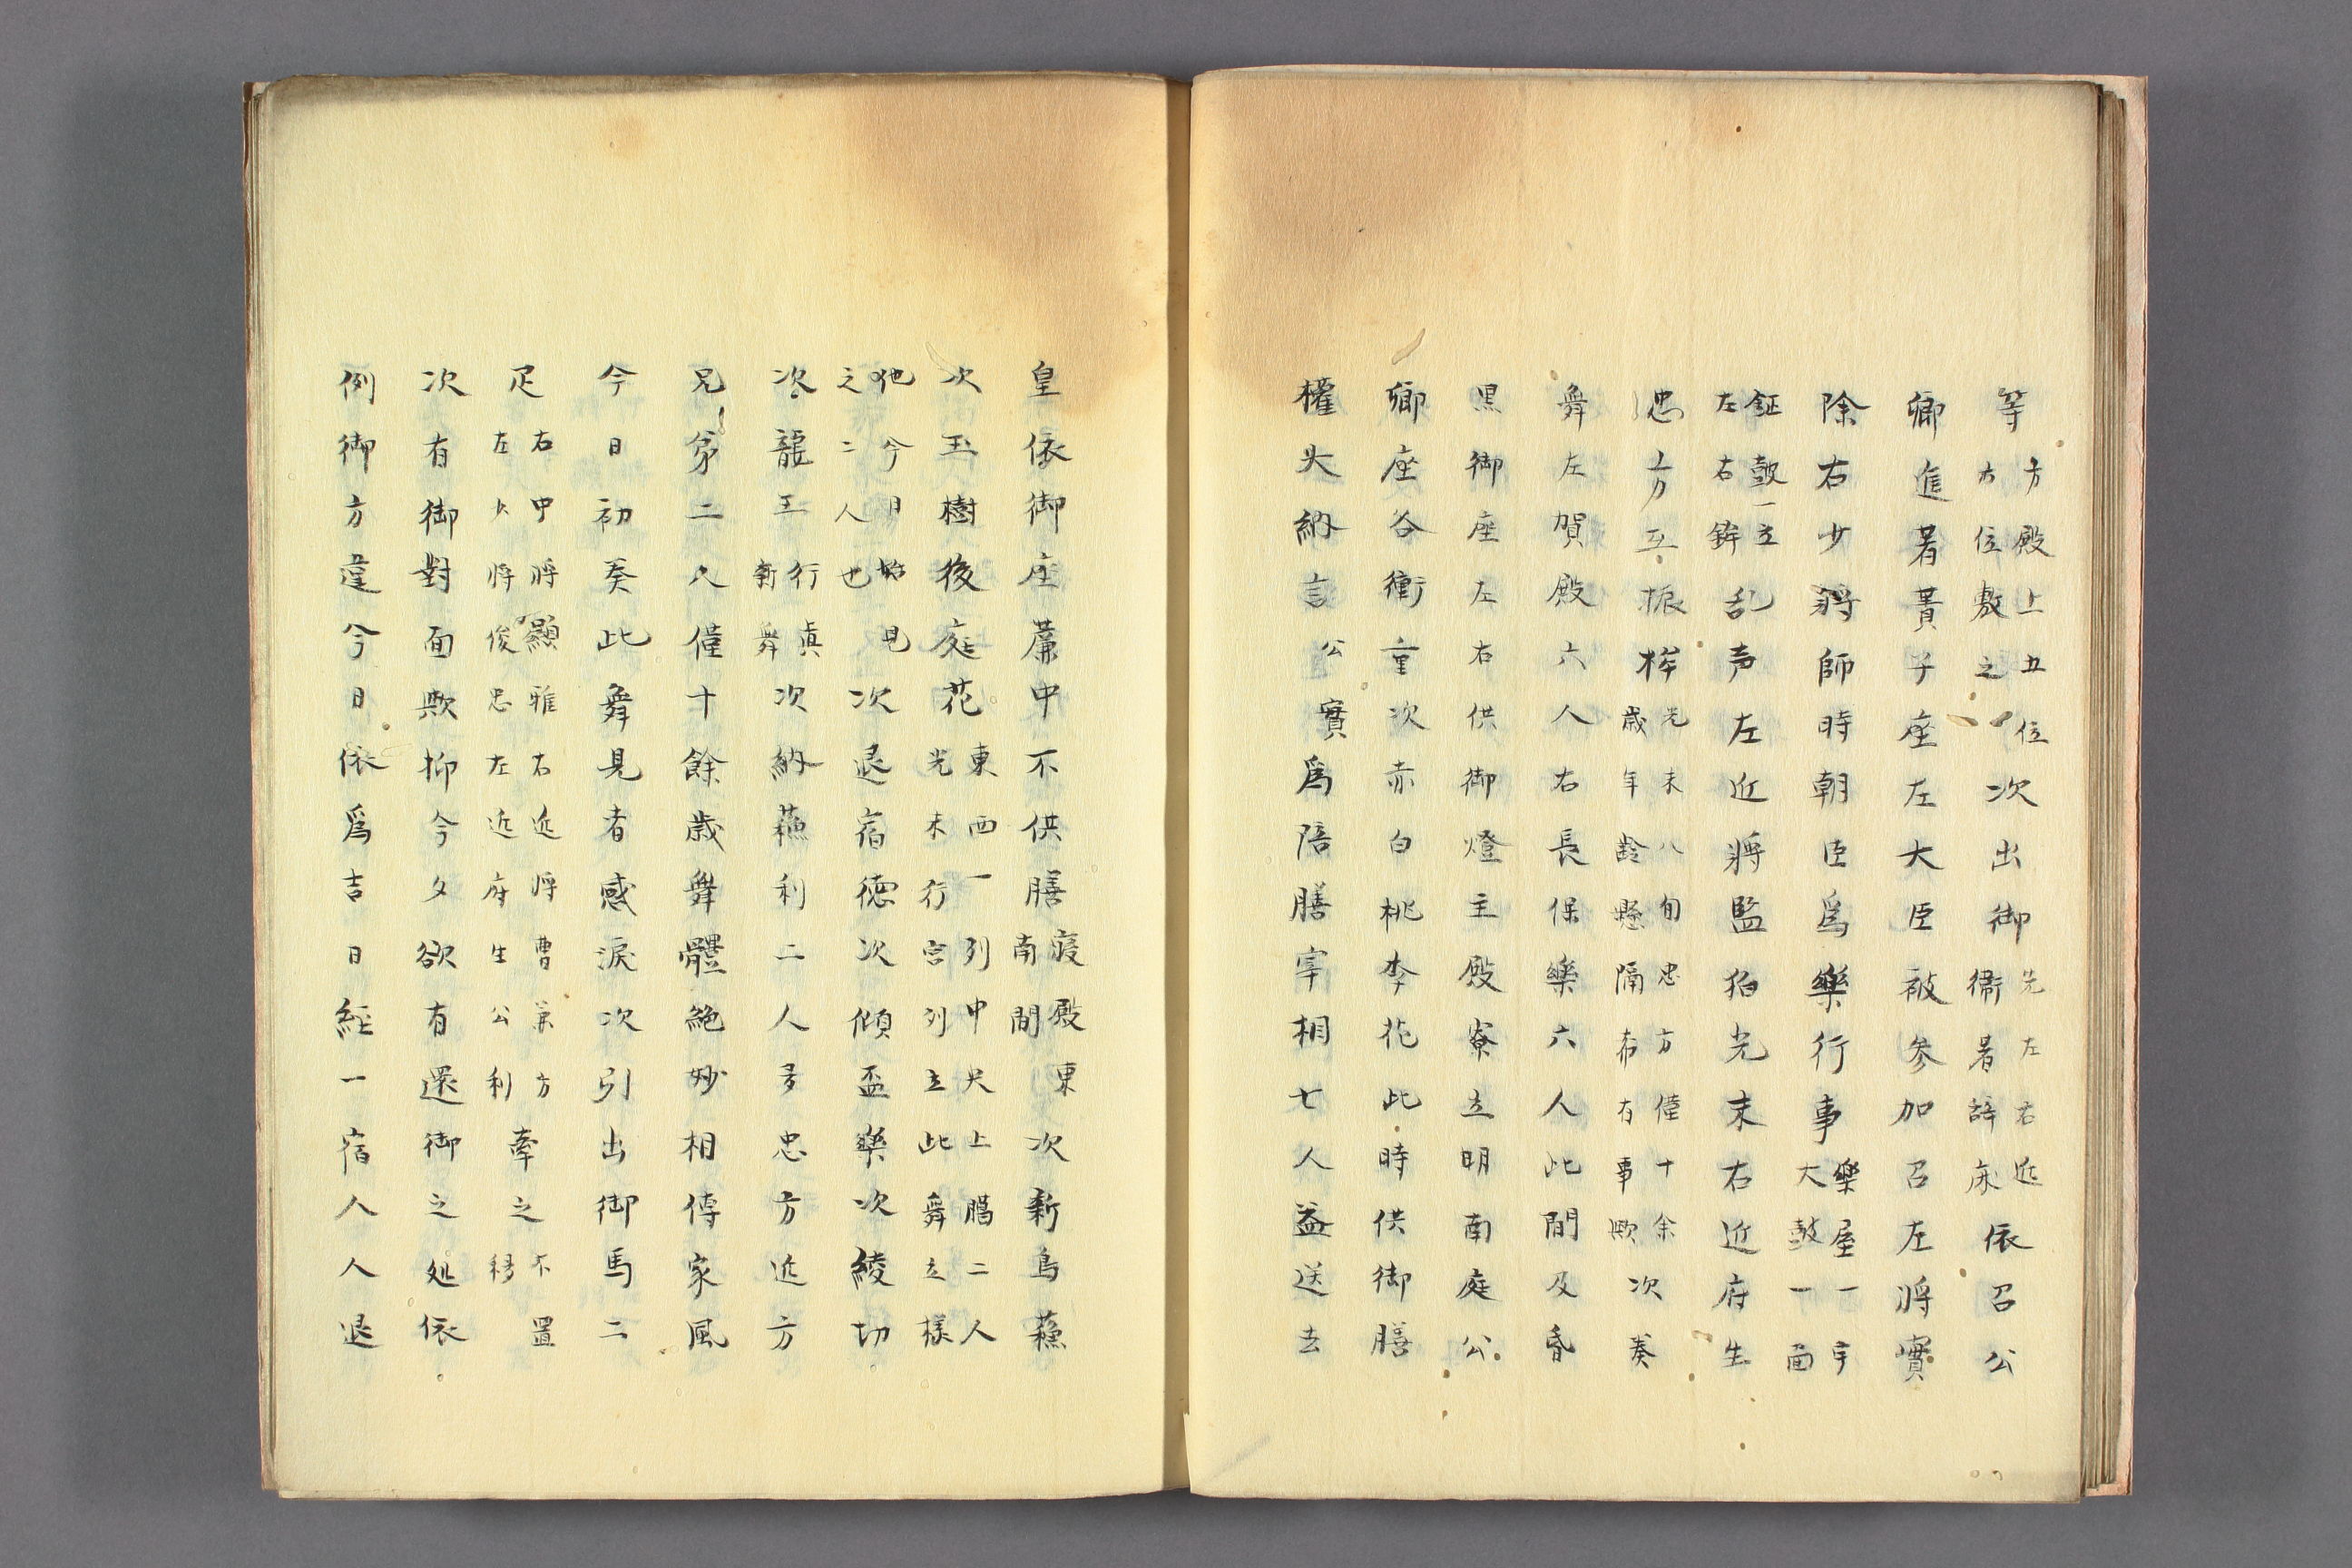 等方殿上五位方位敷之次出御先左右近衞著辞床依召公
卿進著簀子座左大臣被参加召左将實
除右少将師時朝臣爲樂行事樂屋一宇大鼓一面
鉦鼓一立左右鉾乱声左近将監狛光末右近府生
忠方互振桙光末八旬忠方僅十余歳年齢懸隔希有事歟次奏
舞左賀殿六人右長保樂六人此間及昏
黒御座左右供御燈主殿寮立明南庭公
卿座谷衝重次赤白桃李花此時供御膳
權大納言公實爲陪膳宰相七人益送去
皇依御座簾中不供膳寝殿東南間次新鳥蘓
次玉樹後庭花東西一列中央上臈二人光末行宮列立此舞立様
他今日始見之二人也次退宿徳次傾盃樂次綾切
次龍王行眞新舞次納蘓利二人多忠方近方
兄弟二人僅十餘歳舞體絶妙相傳家風
今日初奏此舞見者感涙次引出御馬二
疋右中将顯雅右近将曹兼方左少将俊忠左近府生公利牽之不置移
次有御對面歟抑今夕欲有還御之処依
例御方違今日依爲吉日経一宿人人退